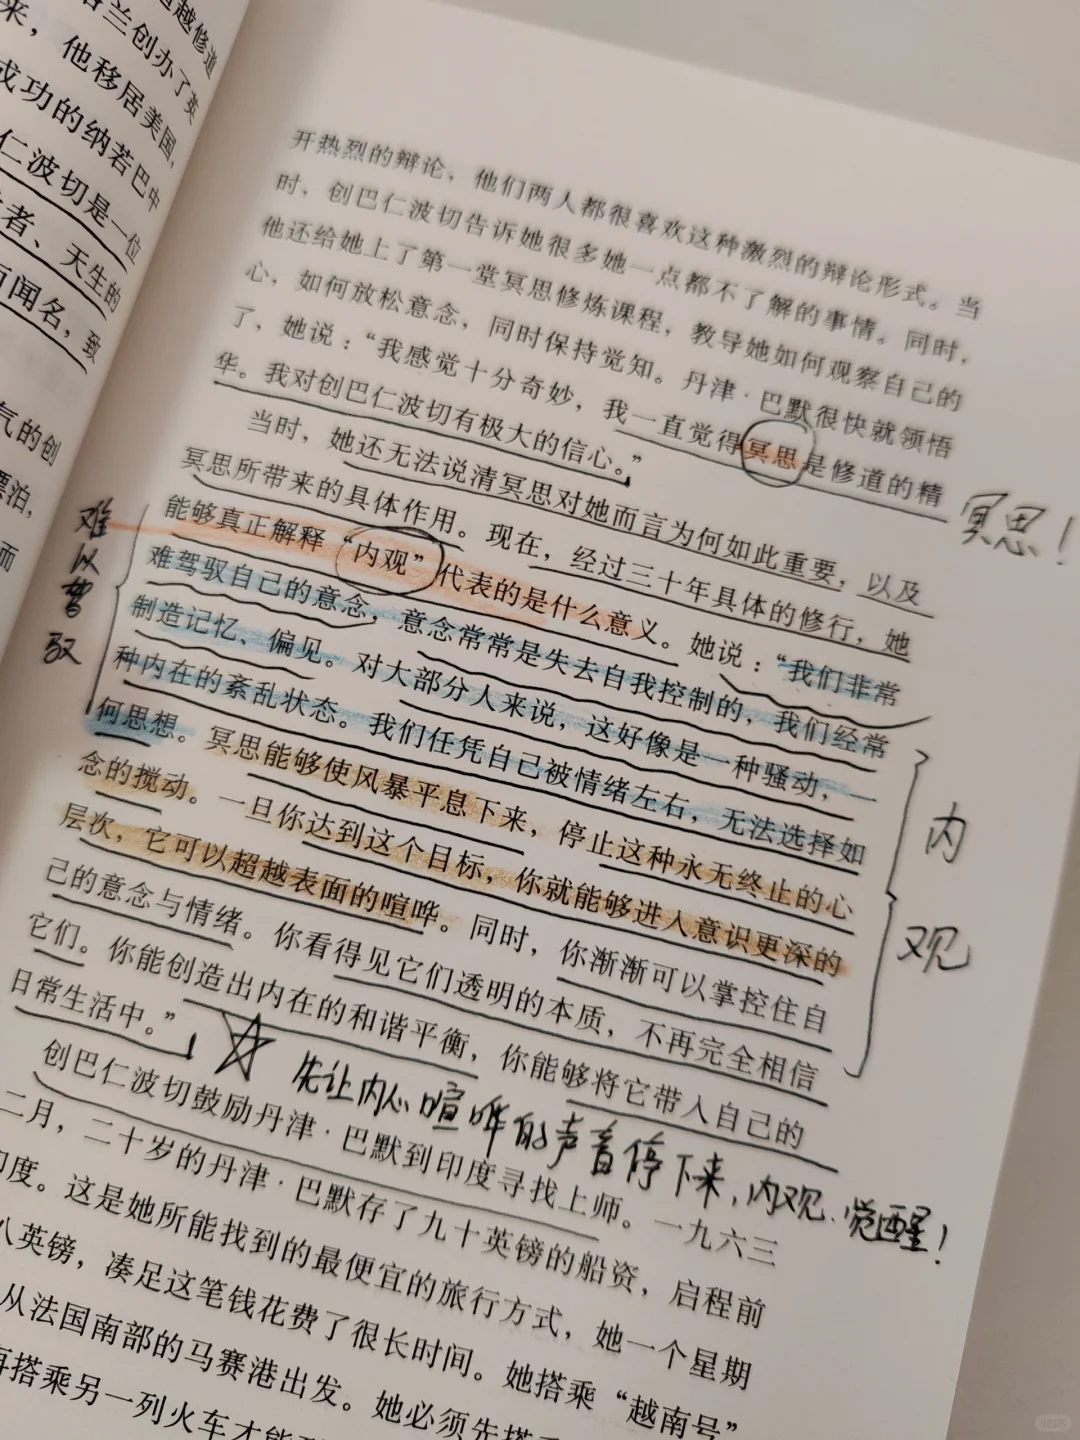 越修道
格兰创办了英
来，他移居美国，
成功的纳若巴中
仁波切是一位
者、天生的
闻名，致
气的创
漂泊，
而
开热烈的辩论，他们两人都很喜欢这种激烈的辩论形式。当
时，创巴仁波切告诉她很多她一点都不了解的事情。同时，
他还给她上了第一堂冥思修炼课程，教导她如何观察自己的
心，如何放松意念，同时保持觉知。丹津·巴默很快就领悟
了，她说：“我感觉十分奇妙，我一直觉得冥思是修道的精
华。我对创巴仁波切有极大的信心。”
当时，她还无法说清冥思对她而言为何如此重要，以及
冥思所带来的具体作用。现在，经过三十年具体的修行，她
能够真正解释“内观”代表的是什么意义。她说：“我们非常
难驾驭自己的意念，意念常常是失去自我控制的，我们经常
制造记忆、偏见。对大部分人来说，这好像是一种骚动，一
种内在的紊乱状态。我们任凭自己被情绪左右，无法选择如
何思想。冥思能够使风暴平息下来，停止这种永无终止的心
念的搅动。一旦你达到这个目标，你就能够进入意识更深的
层次，它可以超越表面的喧哗。同时，你渐渐可以掌控住自
己的意念与情绪。你看得见它们透明的本质，不再完全相信
它们。你能创造出内在的和谐平衡，你能够将它带入自己的
日常生活中。”
创巴仁波切鼓励丹津·巴默到印度寻找上师。一九六三
二月，二十岁的丹津·巴默存了九十英镑的船资，启程前
印度。这是她所能找到的最便宜的旅行方式，她一个星期
八英镑，凑足这笔钱花费了很长时间。她搭乘“越南号”
从法国南部的马赛港出发。她必须先搭
再搭乘另一列火车才能
冥思！
难以驾驭
内观
先让内心喧哗的声音停下来，内观、觉醒！
小红书